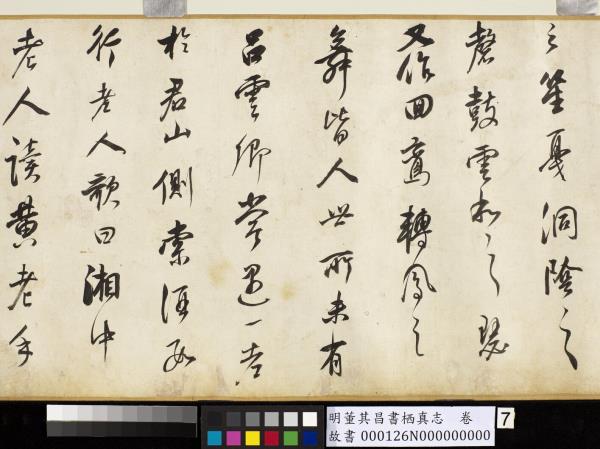 之笙戛洞陰之
磬鼓雲和之瑟
又作回鸞轉鳳之
舞皆人世所未有
呂雲卿嘗遇一老
於君山側索酒數
行老人歌曰湘中
老人讀黃老手
明董其昌書栖真志 卷
故書 000126N000000000
7